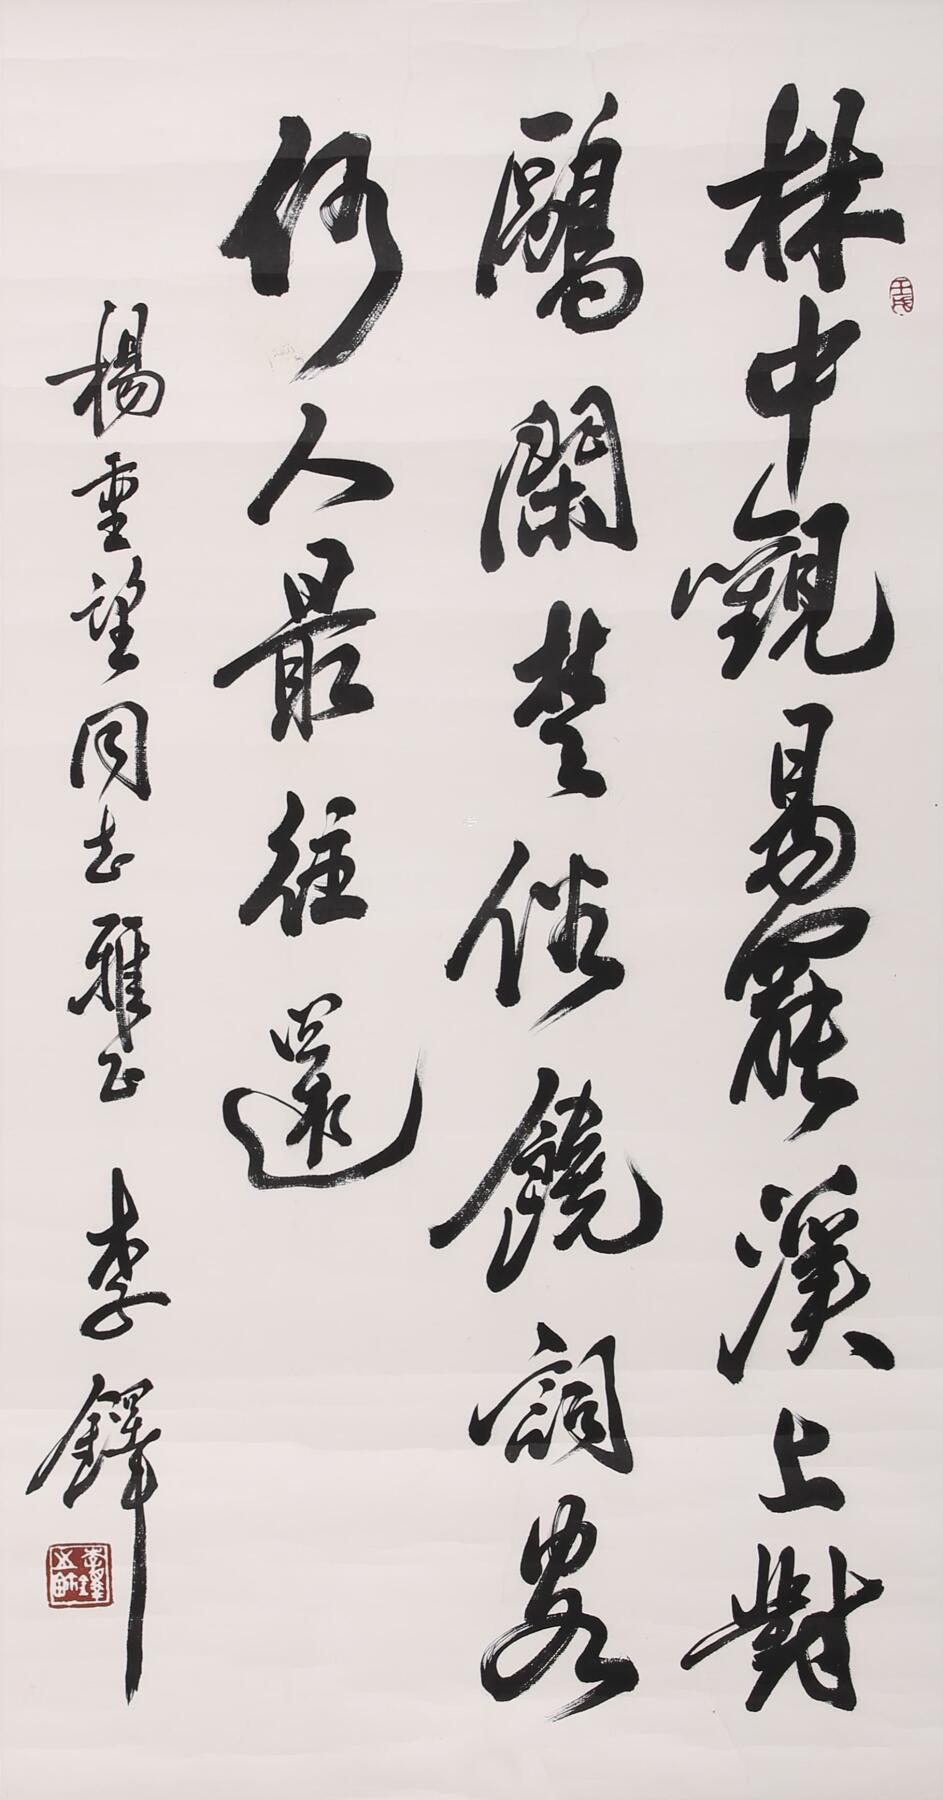 壬戌
林中觀易罷溪上對
鷗閑楚俗饒詞客
何人最往還
楊重望同志雅正 李鐸
李鐸